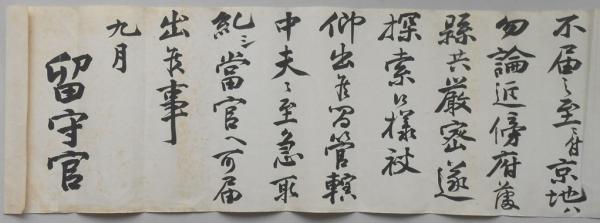 不届之至ニ付京地ハ
勿論近傍府藩
縣共厳密遂
探索候様被
仰出候間管轄
中夫々至急取
糺シ當官ヘ可届
出候事
九月
留守官